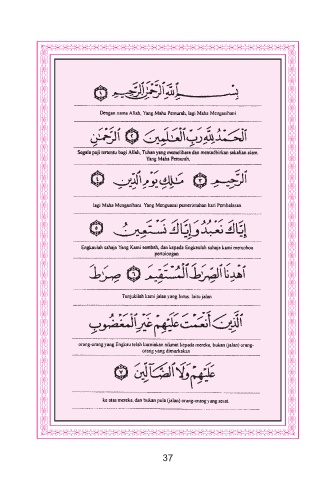 بِسْمِ ٱللَّهِ ٱلرَّحْمَـٰنِ ٱلرَّحِيمِ ١
Dengan nama Allah, Yang Maha Pemurah, lagi Maha Mengasihani
ٱلْحَمْدُ لِلَّهِ رَبِّ ٱلْعَـٰلَمِينَ ٢ ٱلرَّحْمَـٰنِ
Segala puji tertentu bagi Allah, Tuhan yang memelihara dan mentadbirkan sekalian alam.
Yang Maha Pemurah,
ٱلرَّحِيمِ ٣ مَـٰلِكِ يَوْمِ ٱلدِّينِ ٤
lagi Maha Mengasihani Yang Menguasai pemerintahan hari Pembalasan
إِيَّاكَ نَعْبُدُ وَإِيَّاكَ نَسْتَعِينُ ٥
Engkaulah sahaja Yang Kami sembah, dan kepada Engkaulah sahaja kami memohon
pertolongan
ٱهْدِنَا ٱلصِّرَٰطَ ٱلْمُسْتَقِيمَ ٦ صِرَٰطَ
Tunjukilah kami jalan yang lurus. Iaitu jalan
ٱلَّذِينَ أَنْعَمْتَ عَلَيْهِمْ غَيْرِ ٱلْمَغْضُوبِ
orang-orang yang Engkau telah kurniakan nikmat kepada mereka, bukan (jalan) orang-
orang yang dimurkakan
عَلَيْهِمْ وَلَا ٱلضَّآلِّينَ ٧
ke atas mereka, dan bukan pula (jalan) orang-orang yang sesat.
37